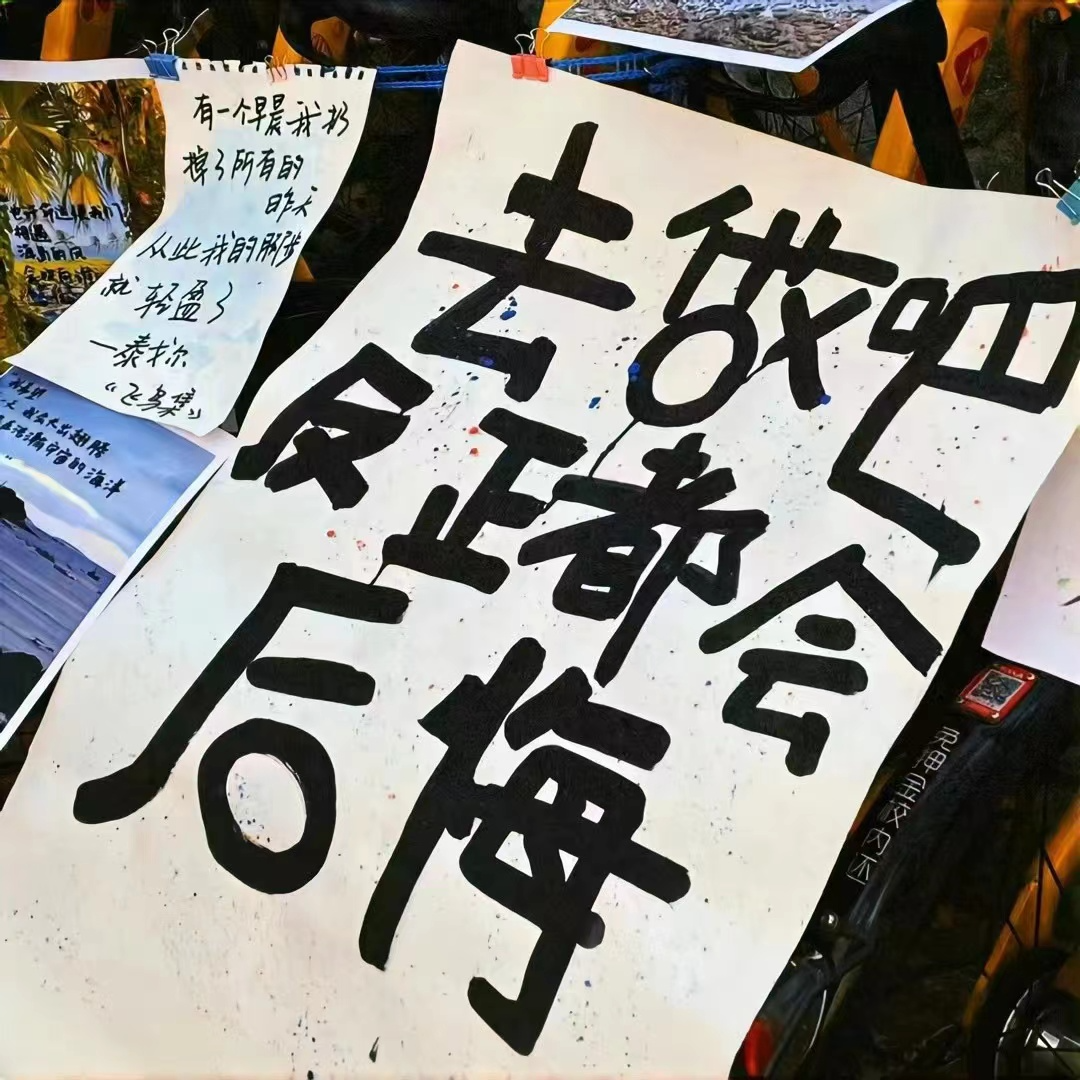 有一个早晨我扔
掉了所有的
昨天
从此我的脚步
就 轻盈了
一泰戈尔
《飞鸟集》
去做吧
反正都会
后悔
相遇
海岛的风
海洋